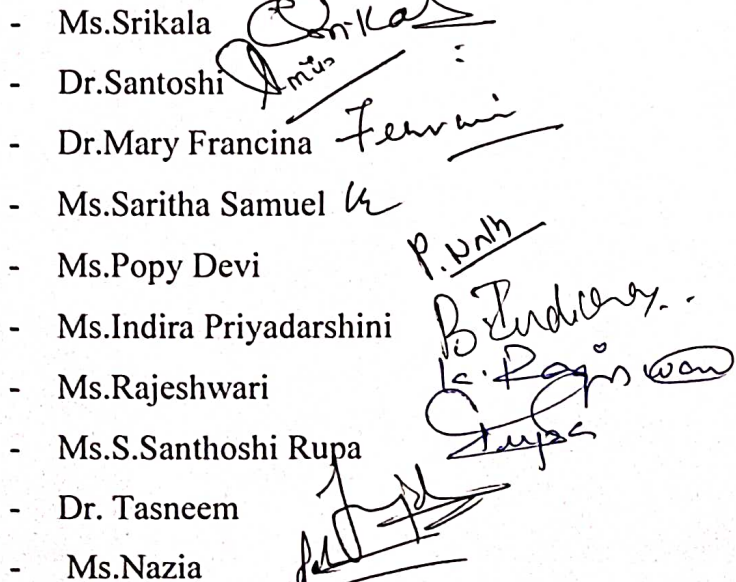 - Ms.Srikala
- Dr.Santoshi
- Dr.Mary Francina
- Ms.Saritha Samuel
- Ms.Popy Devi P. Nath
- Ms.Indira Priyadarshini
- Ms.Rajeshwari
- Ms.S.Santhoshi Rupa Rupa
- Dr. Tasneem
- Ms.Nazia